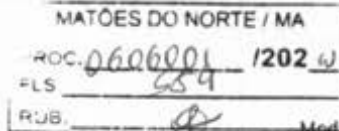 MATÕES DO NORTE / MA
ROC. 0606001 /202
FLS 559
RUB.